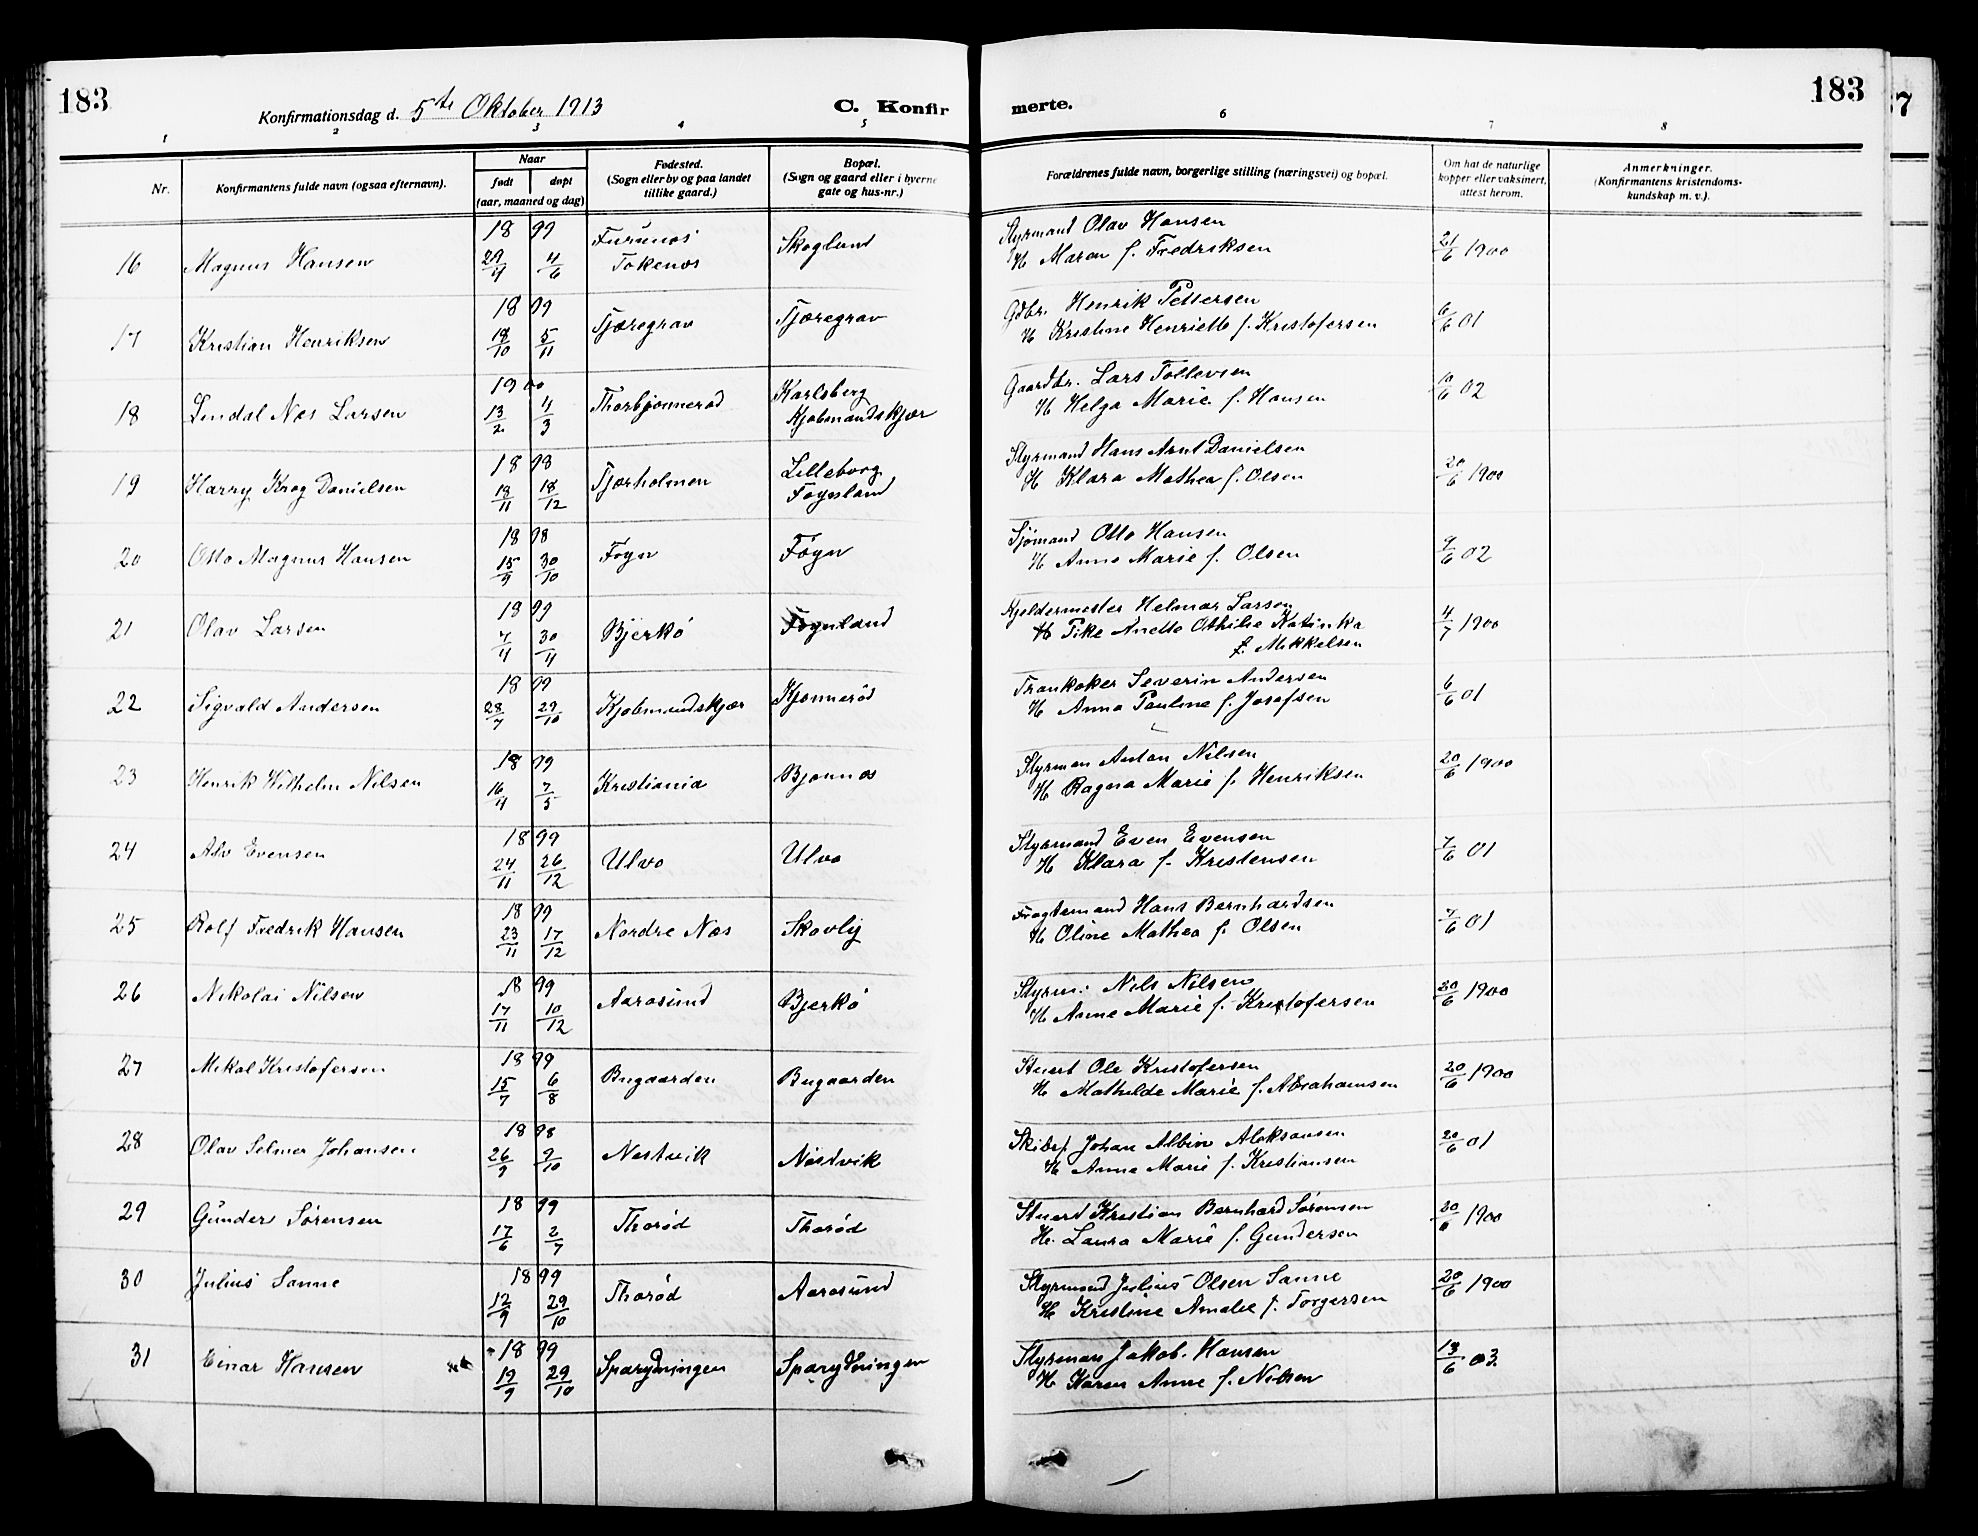 183
Konfirmationsdag d. 5te Oktober 1913
C. Konfirmerte.
183
7
1 2 3 4 5 6 7 8
Nr.
Konfirmantens fulde navn (ogsaa efternavn).
Naar
født døpt
(aar, maaned og dag)
Fødested.
(Sogn eller by og paa landet
tillike gaard.)
Bopæl.
(Sogn og gaard eller i byerne
gate og hus-nr.)
Forældrenes fulde navn, borgerlige stilling (næringsvei) og bopæl.
Om hat de naturlige
kopper eller vaksinert,
attest herom.
Anmerkninger.
(Konfirmantens kristendoms-
kundskap m. v.).
16 Magnus Hansen 1899 29/4 4/6 Furunes Tokenes Skoglund
Styrmand Olav Hansen
H Maren f. Fredriksen 21/6 1900
17 Kristian Henriksen 1899 18/10 5/11 Tjæregrav Tjæregrav
Gdbr. Henrik Pettersen
H Kristine Henriette f. Kristofersen 6/6 01
18 Lindal Næs Larsen 1900 13/2 4/3 Thorbjønnerød Karlsberg Kjøbmandskjær
Gaardbr. Lars Tollevsen
H Helga Marie f. Hansen 10/6 02
19 Harry Krog Danielsen 1898 18/11 18/12 Tjærholmen Lilleborg Føynland
Styrmand Hans Arnt Danielsen
H Klara Mathea f. Olsen 20/6 1900
20 Otto Magnus Hansen 1898 15/9 30/10 Føyn Føyn
Sjømand Otto Hansen
H Anna Marie f. Olsen 9/6 02
21 Olav Larsen 1899 7/4 30/4 Bjerkø Føynland
Kjeldermester Helmar Larsen
H Pike Anette Othilie Katinka
f. Mikkelsen 4/7 1900
22 Sigvald Andersen 1899 28/7 29/10 Kjøbmandskjær Kjønnerød
Trankoker Severin Andersen
H Anna Pauline f. Josefsen 6/6 01
23 Henrik Wilhelm Nilsen 1899 16/4 7/5 Kristiania Bjønnes
Styrman Anton Nilsen
H Ragna Marie f. Henriksen 20/6 1900
24 Alv Evensen 1899 24/11 26/12 Ulvø Ulvø
Styrmand Even Evensen
H Klara f. Kristensen 7/6 01
25 Rolf Fredrik Hansen 1899 23/11 17/12 Nordre Næs Skovly
Fragtemand Hans Bernhardsen
H Oline Mathea f. Olsen 7/6 01
26 Nikolai Nilsen 1899 17/11 10/12 Aarøsund Bjerkø
Styrm. Nils Nilsen
H Anne Marie f. Kristofersen 20/6 1900
27 Mikal Kristofersen 1899 15/7 6/8 Bugaarden Bugaarden
Stuert Ole Kristofersen
H Mathilde Marie f. Abrahamsen 20/6 1900
28 Olav Selmer Johansen 1898 26/9 9/10 Nestvik Nestvik
Skibsf Johan Albin Aleksansen
H Anna Marie f. Kristiansen 20/6 01
29 Gunder Sørensen 1899 17/6 2/7 Thorød Thorød
Stuerd Kristian Bernhard Sørensen
H. Laura Marie f. Gundersen 20/6 1900
30 Julius Sanne 1899 12/9 29/10 Thorød Aarøsund
Styrmand Julius Olsen Sanne
H Kristine Amalie f. Torgersen 20/6 1900
31 Einar Hansen 1899 19/9 29/10
Styrman Jakob Hansen
H Karen Anne f. Nilsen 13/6 03